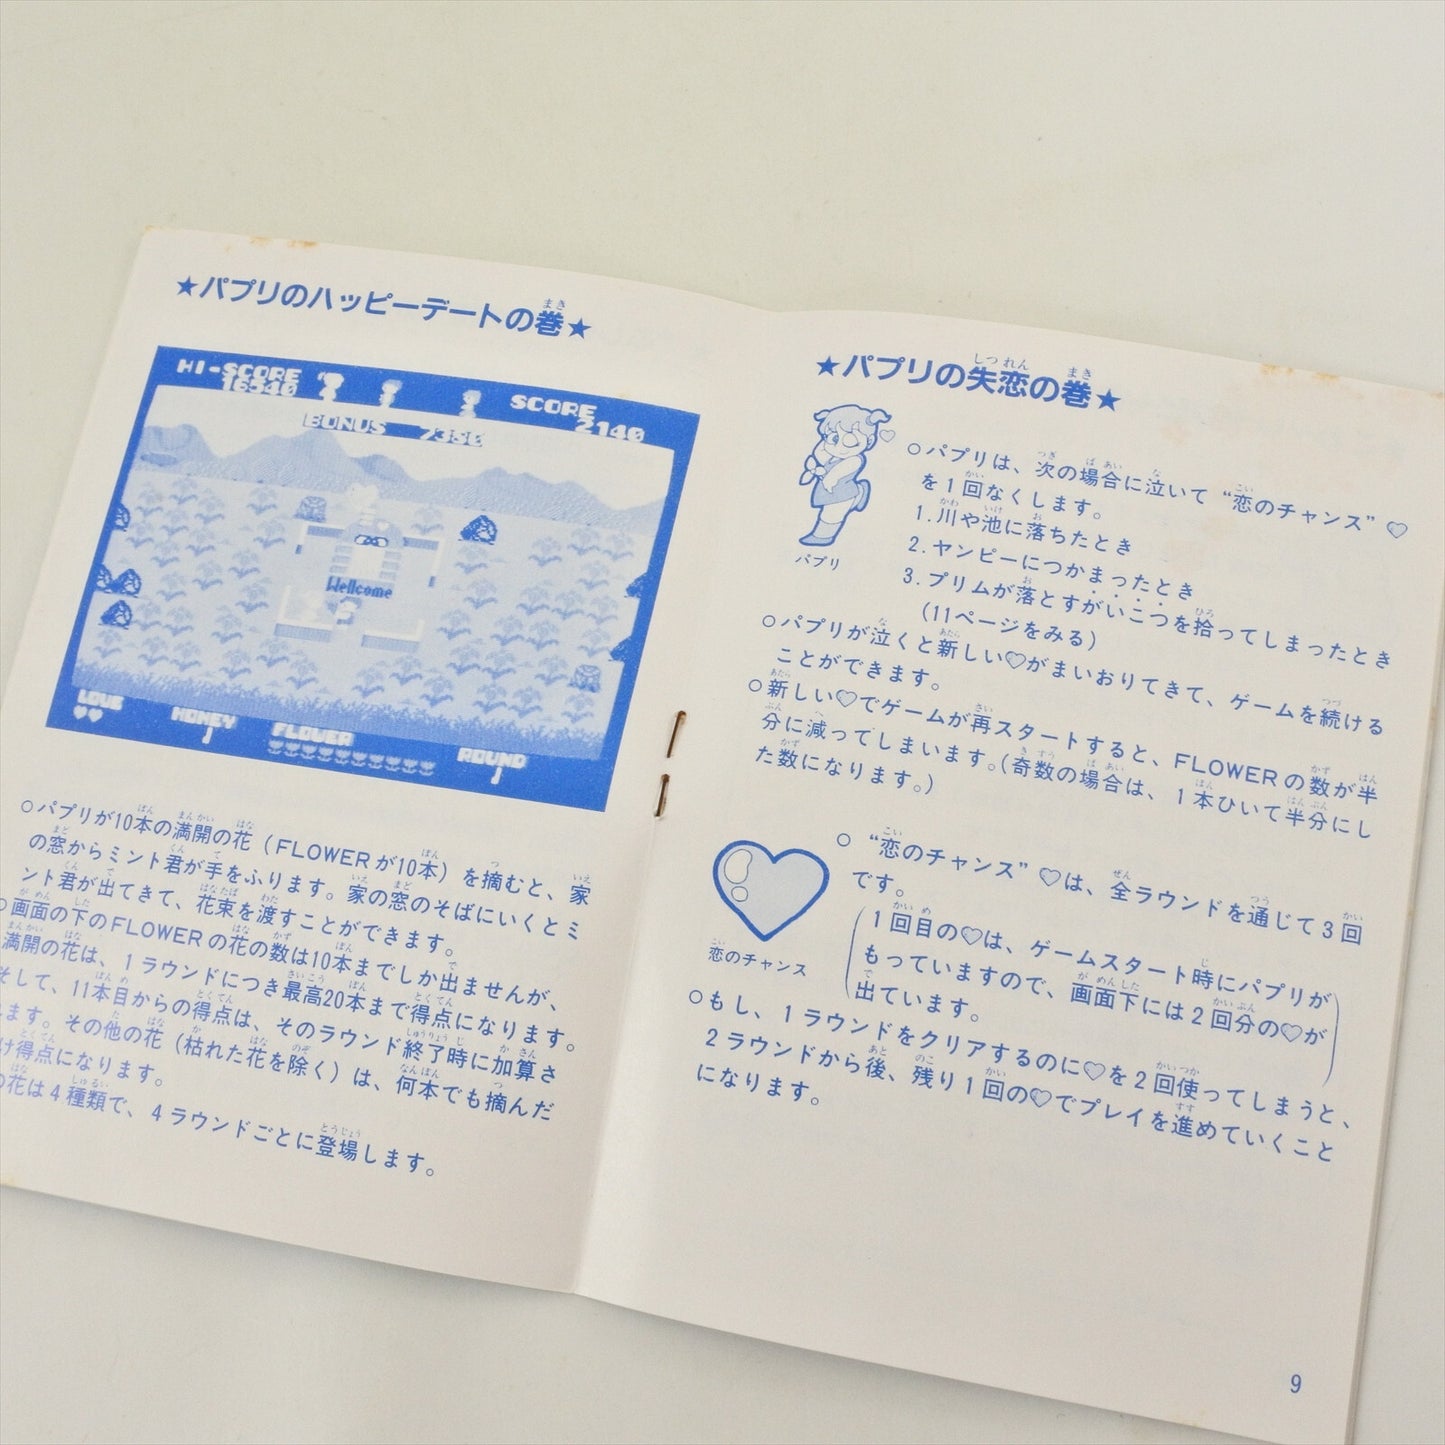 ★パプリのハッピーデートの巻★
HI-SCORE
16340
SCORE
2140
BONUS 7380
Wellcome
LOVE
HONEY
FLOWER
ROUND
○パプリが10本の満開の花（FLOWERが10本）を摘むと、家
の窓からミント君が手をふります。家の窓のそばにいくとミ
ント君が出てきて、花束を渡すことができます。
○画面の下のFLOWERの花の数は10本までしか出ませんが、
満開の花は、1ラウンドにつき最高20本まで得点になります。
そして、11本目からの得点は、そのラウンド終了時に加算さ
ます。その他の花（枯れた花を除く）は、何本でも摘んだ
け得点になります。
の花は4種類で、4ラウンドごとに登場します。
★パプリの失恋の巻★
パプリ
○パプリは、次の場合に泣いて“恋のチャンス”♡
を1回なくします。
1.川や池に落ちたとき
2.ヤンピーにつかまったとき
3.プリムが落とすがいこつを拾ってしまったとき
（11ページをみる）
○パプリが泣くと新しい♡がまいおりてきて、ゲームを続ける
ことができます。
○新しい♡でゲームが再スタートすると、FLOWERの数が半
分に減ってしまいます。（奇数の場合は、1本ひいて半分にし
た数になります。）
恋のチャンス
○“恋のチャンス”♡は、全ラウンドを通じて3回
です。
（1回目の♡は、ゲームスタート時にパプリが
もっていますので、画面下には2回分の♡が
出ています。）
○もし、1ラウンドをクリアするのに♡を2回使ってしまうと、
2ラウンドから後、残り1回の♡でプレイを進めていくこと
になります。
9